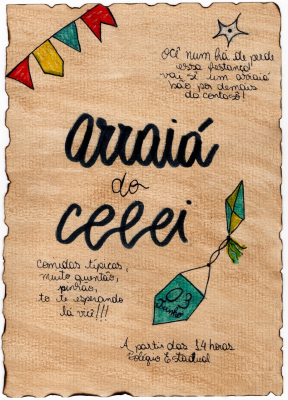 OCÊ num há de perde
essa festança!
vai sê um arraiá
bão por demais
da conta sô!
arraiá
do
ceeei
Comidas típicas,
muito quentão,
pinhão,
to te esperando
lá viu!!!
03
Junho
A partir das 14 horas
Colégio Estadual